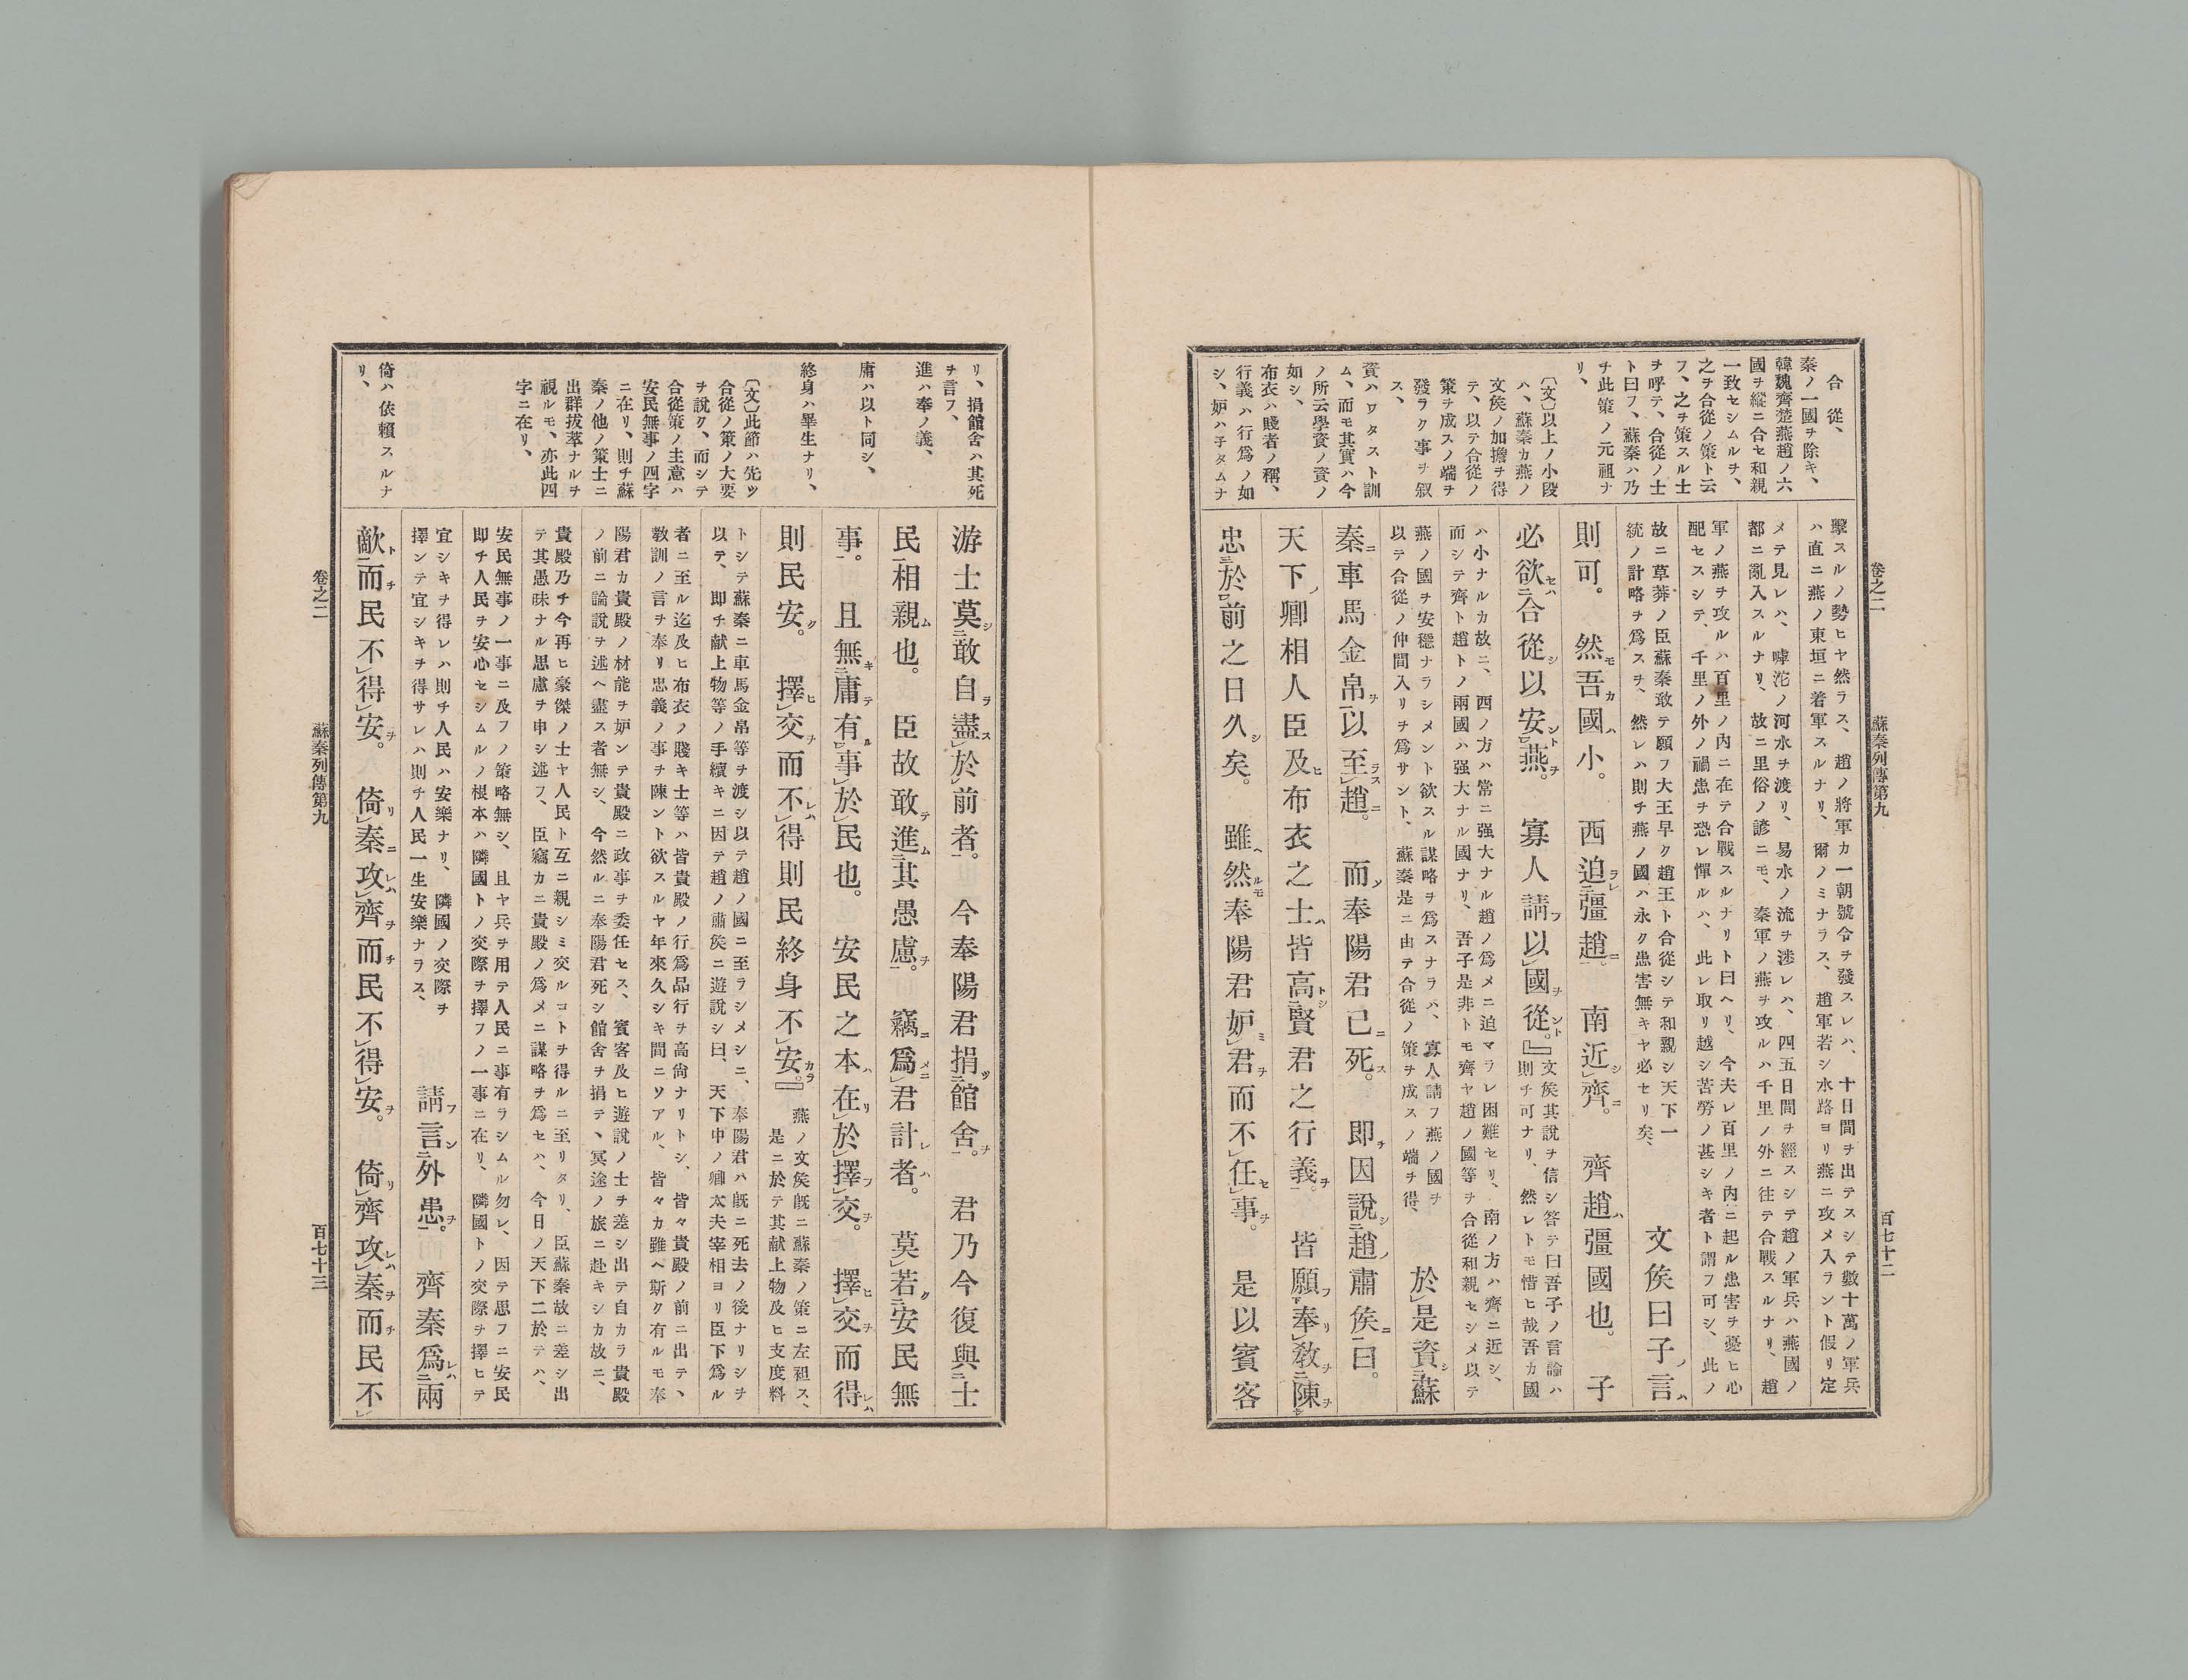 卷之二
蘇秦列傳第九
百七十二
合從、
秦ノ一國ヲ除キ、
韓魏齊楚燕趙ノ六
國ヲ縱ニ合セ和親
一致セシムルヲ、
之ヲ合從ノ策ト云
フ、之ヲ策スル士
ヲ呼テ、合從ノ士
ト曰フ、蘇秦ハ乃
チ此策ノ元祖ナ
リ、
〔文〕以上ノ小段
ハ、蘇秦カ燕ノ
文矦ノ加擔ヲ得
テ、以テ合從ノ
策ヲ成スノ端ヲ
發ラク事ヲ叙
ス、
資ハワタスト訓
ム、而モ其實ハ今
ノ所云學資ノ資ノ
如シ、
布衣ハ賤者ノ稱、
行義ハ行爲ノ如
シ、妒ハ子タムナ
擊スルノ勢ヒヤ然ラス、趙ノ將軍カ一朝號令ヲ發スレハ、十日間ヲ出テスシテ數十萬ノ軍兵
ハ直ニ燕ノ東垣ニ着軍スルナリ、爾ノミナラス、趙軍若シ水路ヨリ燕ニ攻メ入ラント假リ定
メテ見レハ、嘑沱ノ河水ヲ渡リ、易水ノ流ヲ涉レハ、四五日間ヲ經スシテ趙ノ軍兵ハ燕國ノ
都ニ亂入スルナリ、故ニ里俗ノ諺ニモ、秦軍ノ燕ヲ攻ルハ千里ノ外ニ往テ合戰スルナリ、趙
軍ノ燕ヲ攻ルハ百里ノ內ニ在テ合戰スルナリト曰ヘリ、今夫レ百里ノ內ニ起ル患害ヲ憂ヒ心
配セスシテ、千里ノ外ノ禍患ヲ恐レ憚ルハ、此レ取リ越シ苦勞ノ甚シキ者ト謂フ可シ、此ノ
故ニ草莽ノ臣蘇秦敢テ願フ大王早ク趙王ト合從シテ和親シ天下一
統ノ計略ヲ爲スヲ、然レハ則チ燕ノ國ハ永ク患害無キヤ必セリ矣、
文矦曰子言
則可。然吾國小。西迫彊趙。南近齊。齊趙彊國也。子
必欲合從以安燕。寡人請以國從。』
文矦其說ヲ信シ答テ曰吾子ノ言論ハ
則チ可ナリ、然レトモ惜ヒ哉吾カ國
ハ小ナルカ故ニ、西ノ方ハ常ニ强大ナル趙ノ爲メニ迫マラレ困難セリ、南ノ方ハ齊ニ近シ、
而シテ齊ト趙トノ兩國ハ强大ナル國ナリ、吾子是非トモ齊ヤ趙ノ國等ヲ合從和親セシメ以テ
燕ノ國ヲ安穩ナラシメント欲スル謀略ヲ爲スナラハ、寡人請フ燕ノ國ヲ
以テ合從ノ仲間入リヲ爲サント、蘇秦是ニ由テ合從ノ策ヲ成スノ端ヲ得、
於是資蘇
秦車馬金帛以至趙。而奉陽君已死。即因說趙肅矦曰。
天下卿相人臣及布衣之士皆高賢君之行義。皆願奉敎陳
忠於前之日久矣。雖然奉陽君妒君而不任事。是以賓客
リ、捐館舍ハ其死
ヲ言フ、
進ハ奉ノ義、
庸ハ以ト同シ、
終身ハ畢生ナリ、
〔文〕此節ハ先ツ
合從ノ策ノ大要
ヲ說ク、而シテ
合從策ノ主意ハ
安民無事ノ四字
ニ在リ、則チ蘇
秦ノ他ノ策士ニ
出群拔萃ナルヲ
視ルモ、亦此四
字ニ在リ、
倚ハ依賴スルナ
リ、
游士莫敢自盡於前者。今奉陽君捐館舍。君乃今復與士
民相親也。臣故敢進其愚慮。竊爲君計者。莫若安民無
事。且無庸有事於民也。安民之本在於擇交。擇交而得
則民安。擇交而不得則民終身不安。』
燕ノ文矦旣ニ蘇秦ノ策ニ左袒ス、
是ニ於テ其献上物及ヒ支度料
トシテ蘇秦ニ車馬金帛等ヲ渡シ以テ趙ノ國ニ至ラシメシニ、奉陽君ハ旣ニ死去ノ後ナリシヲ
以テ、即チ献上物等ノ手續キニ因テ趙ノ肅矦ニ遊說シ曰、天下中ノ卿太夫宰相ヨリ臣下爲ル
者ニ至ル迄及ヒ布衣ノ賤キ士等ハ皆貴殿ノ行爲品行ヲ高尙ナリトシ、皆々貴殿ノ前ニ出テヽ
敎訓ノ言ヲ奉リ忠義ノ事ヲ陳ント欲スルヤ年來久シキ間ニソアル、皆々カ雖ヘ斯ク有ルモ奉
陽君カ貴殿ノ材能ヲ妒ンテ貴殿ニ政事ヲ委任セス、賓客及ヒ遊說ノ士ヲ差シ出テ自カラ貴殿
ノ前ニ論說ヲ述ヘ盡ス者無シ、今然ルニ奉陽君死シ館舍ヲ捐テヽ冥途ノ旅ニ赴キシカ故ニ、
貴殿乃チ今再ヒ豪傑ノ士ヤ人民ト互ニ親シミ交ルコトヲ得ルニ至リタリ、臣蘇秦故ニ差シ出
テ其愚昧ナル思慮ヲ申シ述フ、臣竊カニ貴殿ノ爲メニ謀略ヲ爲セハ、今日ノ天下ニ於テハ、
安民無事ノ一事ニ及フノ策略無シ、且ヤ兵ヲ用テ人民ニ事有ラシムル勿レ、因テ思フニ安民
即チ人民ヲ安心セシムルノ根本ハ隣國トノ交際ヲ擇フノ一事ニ在リ、隣國トノ交際ヲ擇ヒテ
宜シキヲ得レハ則チ人民ハ安樂ナリ、隣國ノ交際ヲ
擇ンテ宜シキヲ得サレハ則チ人民一生安樂ナラス、
請言外患。齊秦爲兩
敵而民不得安。倚秦攻齊而民不得安。倚齊攻秦而民不
卷之二
蘇秦列傳第九
百七十三